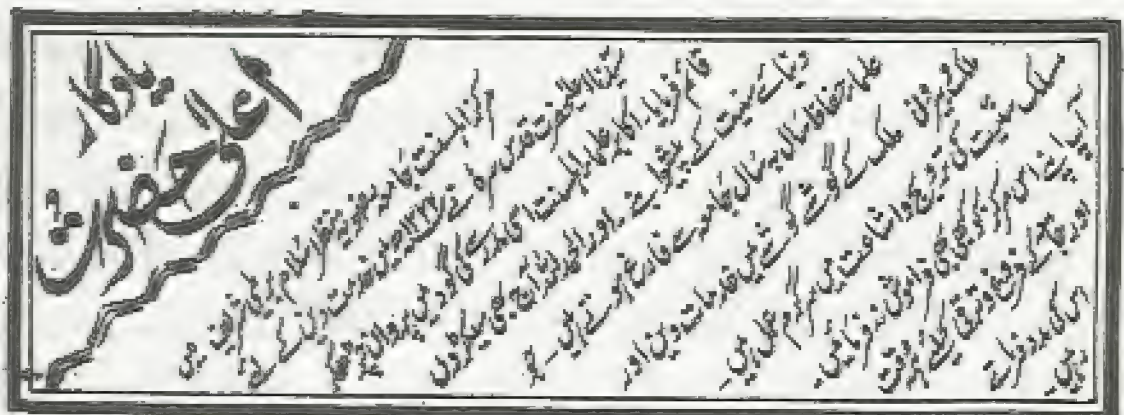 یادگار
اعلیٰ حضرت
مرکز اہلسنت جامعہ رضویہ منظر اسلام بریلی شریف میں
سیدنا اعلیٰحضرت قدس سرہٗ نے ۱۳۲۲ھ میں خدمت دین کے لئے
قائم فرمایا۔ اکابر علماء اہلسنت اسی مدرسے کی گود میں پروان چڑھے
دنیائے سنیت کے پیشوا بنے۔ اور الحمد للہ آج بھی سیکڑوں
علماء حفاظ سال بہ سال جامعہ سے فارغ ہوتے ہیں۔
ملک کے گوشے گوشے میں خدمات دین اور
مسلک سنیت کی ترویج و اشاعت میں سرگرم عمل ہیں۔
آپ اپنے اس مرکز کو کبھی بھی فراموش نہ فرمائیں۔
اور جامعہ کے فروغ و ترقی کیلئے ہر وقت
اس کی مدد فرماتے
رہیں۔